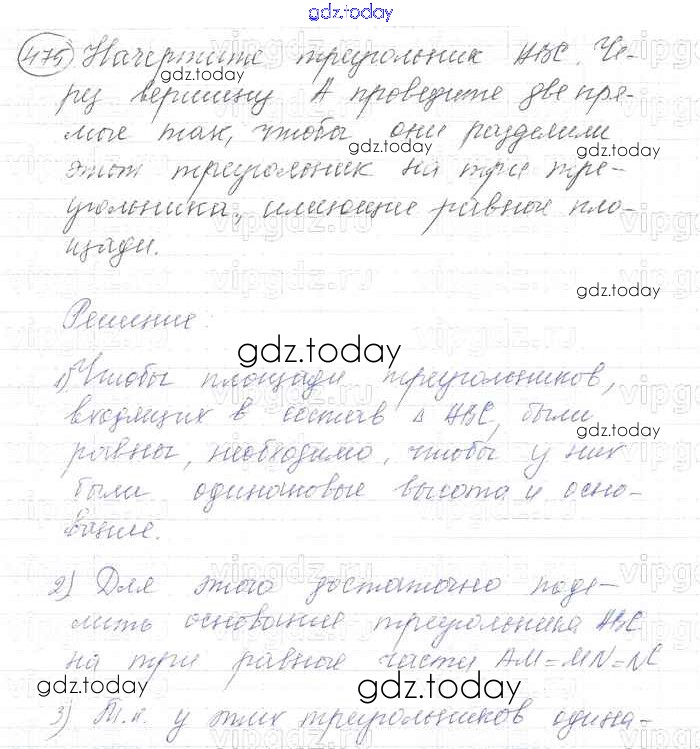 gdz.today
475 Начертите треугольник ABC. Че-
gdz.today
рез вершину A проведите две пря-
мые так, чтобы они разделили
gdz.today
этот треугольник на три тре-
угольника, имеющие равные пло-
щади.
gdz.today
Решение:
gdz.today
1) Чтобы площади треугольников,
входящих в состав Δ ABC, были
gdz.today
равны, необходимо, чтобы у них
были одинаковые высота и осно-
вание.
2) Для этого достаточно поде-
лить основание треугольника ABC
на три равные части AM=MN=NC
gdz.today gdz.today
3) Т.к. у этих треугольников одина-